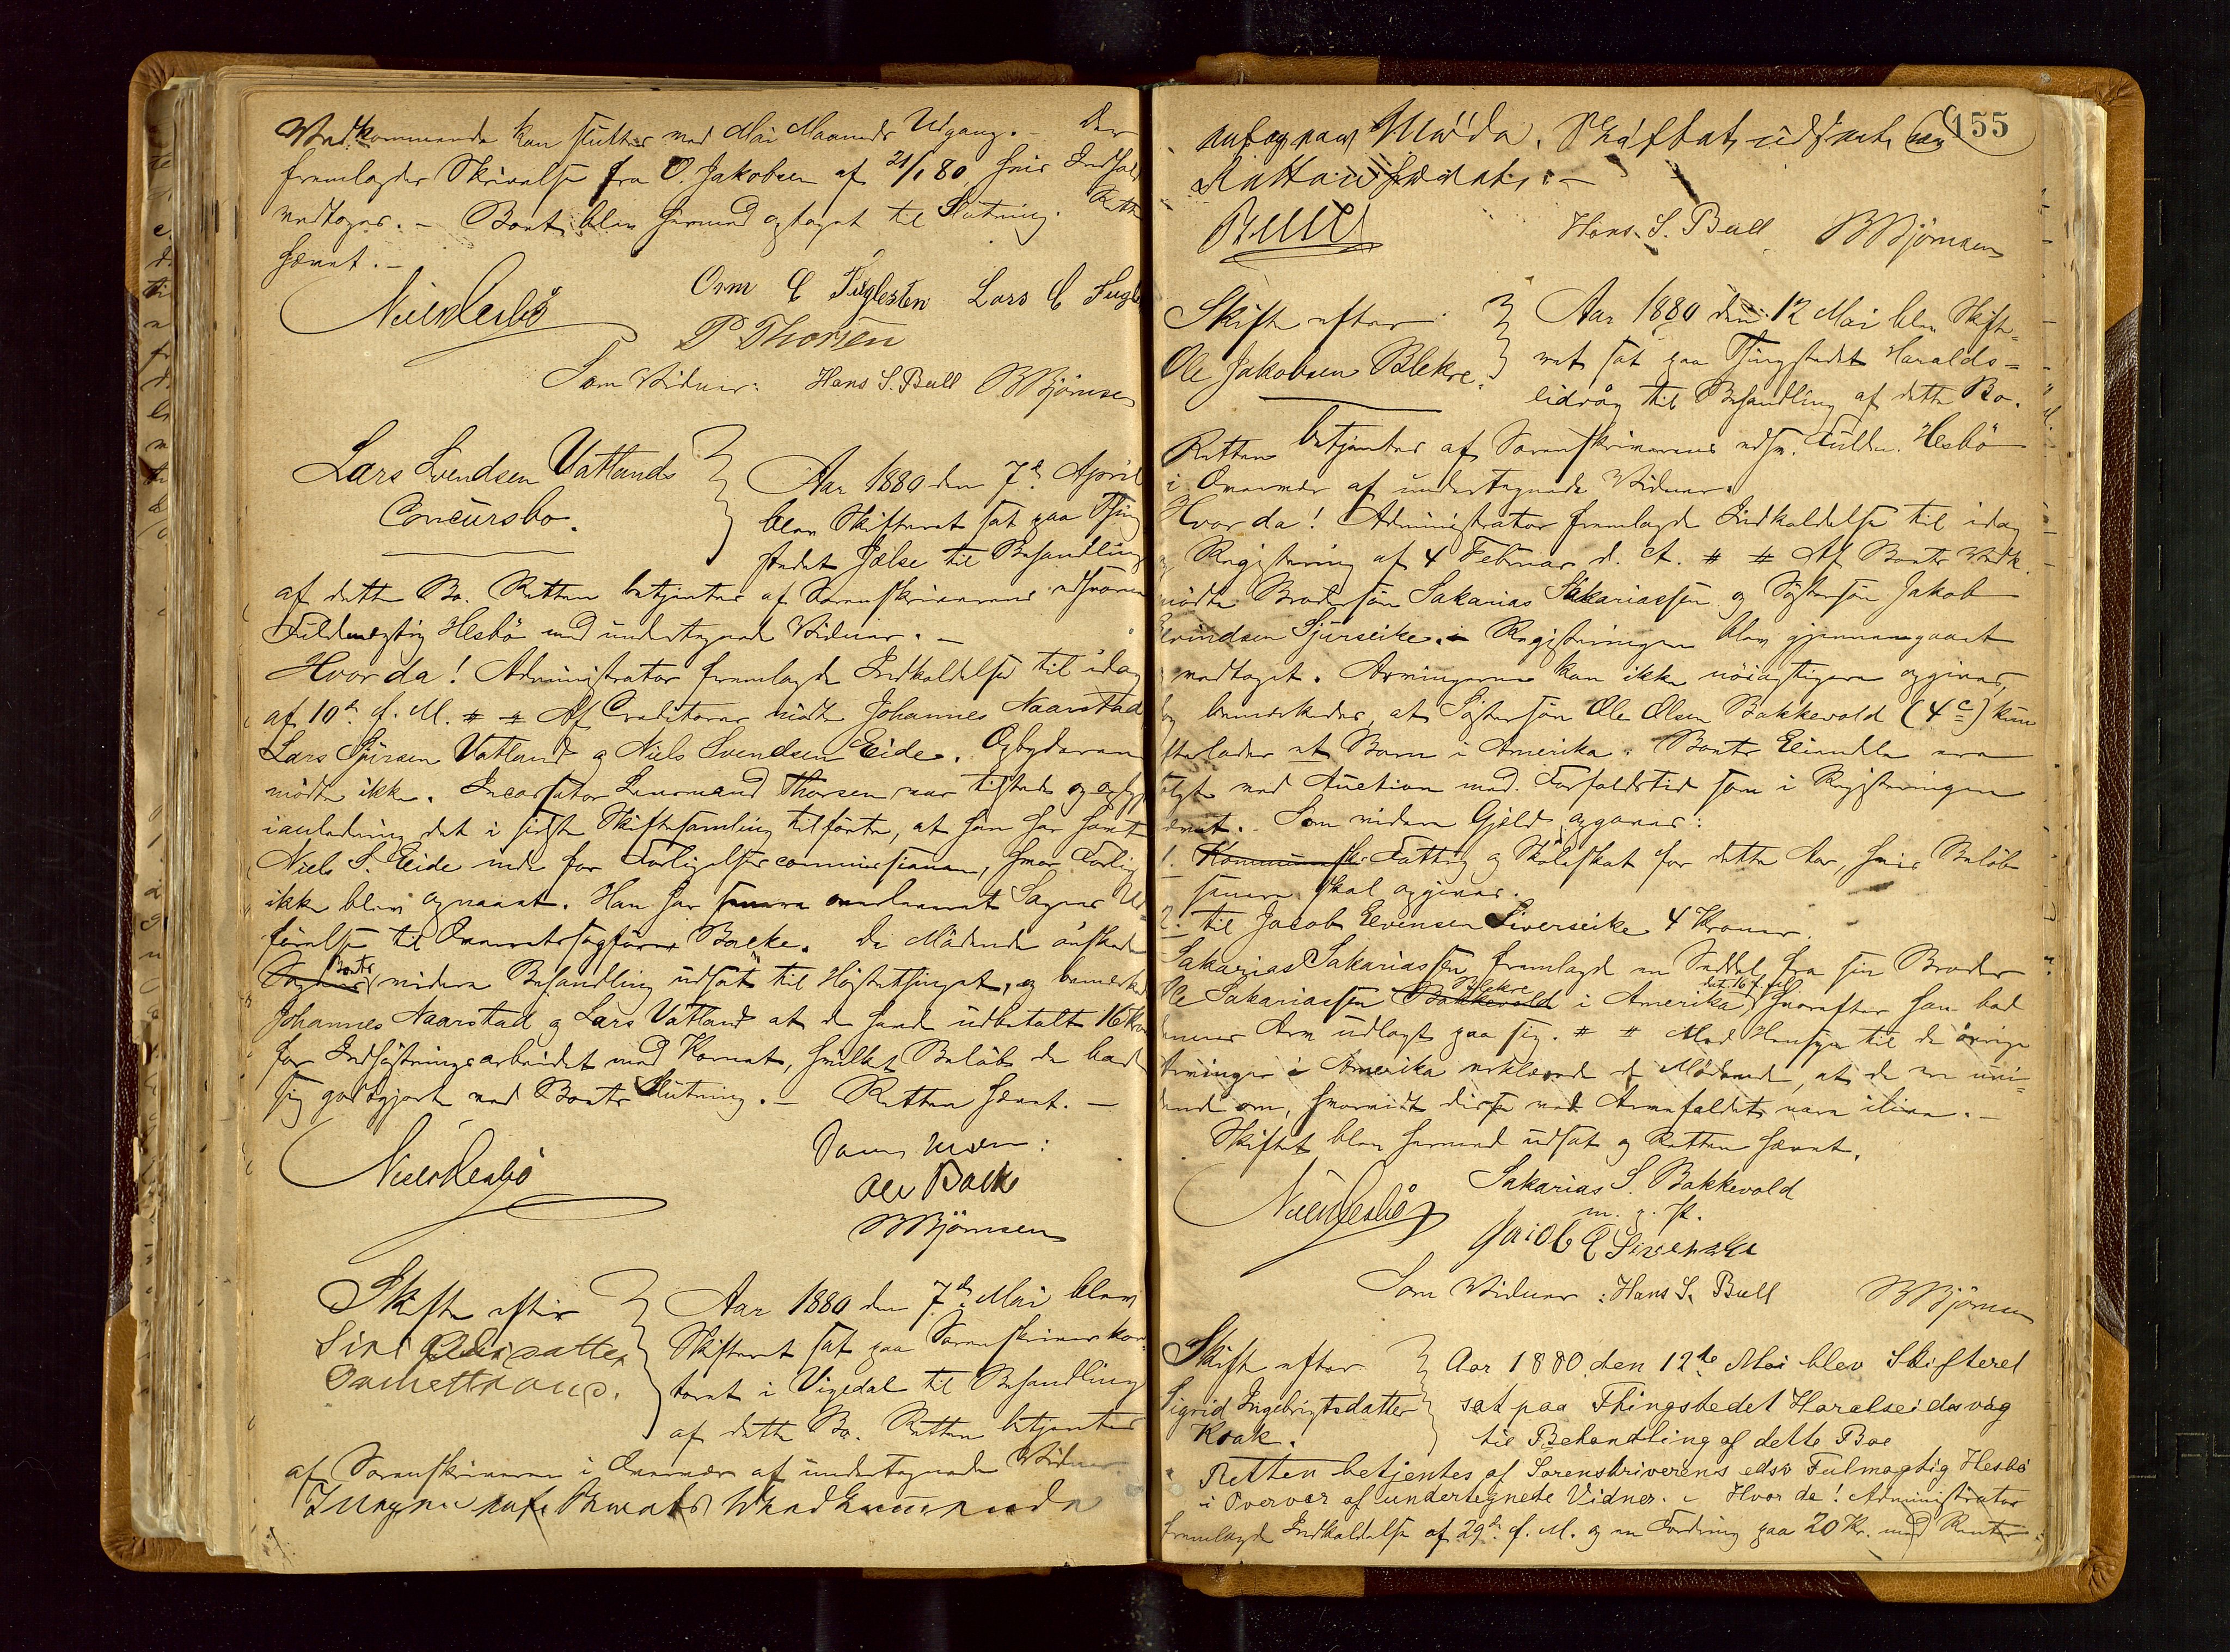 Vedkommende kan sluttes ved Mai Maaneds Udgang. – Der
fremlagdes Skrivelse fra O. Jakobsen af 21/1 80, hvis Indhold
modtoges. – Boet blev hermed optaget til Slutning. Retten
hævet. –
Niels Hesbö Orm E Fuglesten Lars E Fugle
P Thorsen
Som Vidner: Hans S. Bull B Bjørnsen
Lars Svendsen Vatlands
Concursbo.
Aar 1880 den 7de April
blev Skifteret sat paa Thing
stedet Jælse til Behandling
af dette Bo. Retten betjentes af Sorenskriverens edsvorne
Fuldmægtig Hesbö med undertegnede Vidner. –
Hvorda! Administrator fremlagde Indkaldelse til idag
af 10de f. M. # # Af Creditorer mödte Johannes Naarstad
Lars Sjursen Vatland og Niels Svendsen Eide. Opbyderen
mödte ikke. Incassator Lensmand Thorsen var tilstede og oplyste
ianledning det i sidste Skiftesamling tilförte, at han har havt
Niels S. Eide inde for Forligelsescommissionen, hvor Forlig
ikke blev opnaaet. Han har senere overleveret Sagens Ud-
förelse til Overretssagförer Backe. De Mödende önskede
Sagens Boets videre Behandling udsat til Høstthinget, og bemærkede
Johannes Naarstad og Lars Vatland at de havde udbetalt 16 Kr
for Indhöstningsarbeidet med Kornet, hvilket Belöb de bad
sig godtgjort ved Boets Slutning. – Retten hævet. –
Niels Hesbö
Som Vidner:
Ole Backe
B Bjørnsen
Skifte efter
Siri
Aar 1880 den 7de Mai blev
Skifteret sat paa Sorenskriverkon-
toret i Vigedal til Behandling
af dette Bo. Retten betjentes
af Sorenskriveren i Overvær af undertegnede Vidner.
Ingen af Boets Vedkommende
155
Möde. Skiftet udsat og
Retten hævet. –
Bull Hans S. Bull B Bjørnsen
Skifte efter
Ole Jakobsen Blekre.
Aar 1880 den 12 Mai blev Skifte-
ret sat paa Thingstedet Haralds-
eidvåg til Behandling af dette Bo.
Retten betjentes af Sorenskriverens edsv. Fuldm. Hesbö
i Overvær af undertegnede Vidner.
Hvorda! Administrator fremlagde Indkaldelse til idag
og Registrering af 4 Februar d. A. # # Af Boets Vedk.
mödte Brodersön Sakarias Sakariassen og Söstersön Jakob
Eevindsen Sjurseike. – Registreringen blev gjennemgaaet
modtaget. Arvingerne kan ikke nöiagtigere opgives,
og bemærkedes, at Söstersön Ole Olsen Bakkevold (4c) kun
efterlader et Barn i Amerika. Boets Eiendele ere
solgt ved Auction med Forfaldstid som i Registreringen
ævnt. Som videre Gjeld opgaves:
1. Kommuneskt Fattig og Skoleskat for dette Aar, hvis Belöb
senere skal opgives.
2. til Jacob Eevinsen Siverseike 4 Kroner.
Sakarias Sakariassen fremlagde en Seddel fra sin Broder
Ole Sakariassen Bakkevold Blekre i Amerika, hvorefter han bad
dennes Arv udlagt paa sig. # # Med Hensyn til de övrige
Arvinger i Amerika erklærede de Mödende, at de ere uvi-
dende om, hvorvidt disse ved Arvefaldet vare ilive. –
Skiftet blev hermed udsat og Retten hævet.
Niels Hesbö Sakarias S. Bakkevold
m. p. P.
Jacob E Siverseike
Som Vidner: Hans S. Bull B Bjørnsen
Skifte efter
Sigrid Ingebrigtsdatter
Kvak.
Aar 1880 den 12te Mai blev Skifteret
sat paa Thingstedet Haralseidsvåg
til Behandling af dette Boe
Retten betjentes af Sorenskriverens edsv Fulmægtig Hesbö
i Overvær af undertegnede Vidner. – Hvor da! Administrator
fremlagde Indkaldelse af 29de f. M. og en Fordring paa 20 Kr. med Renter